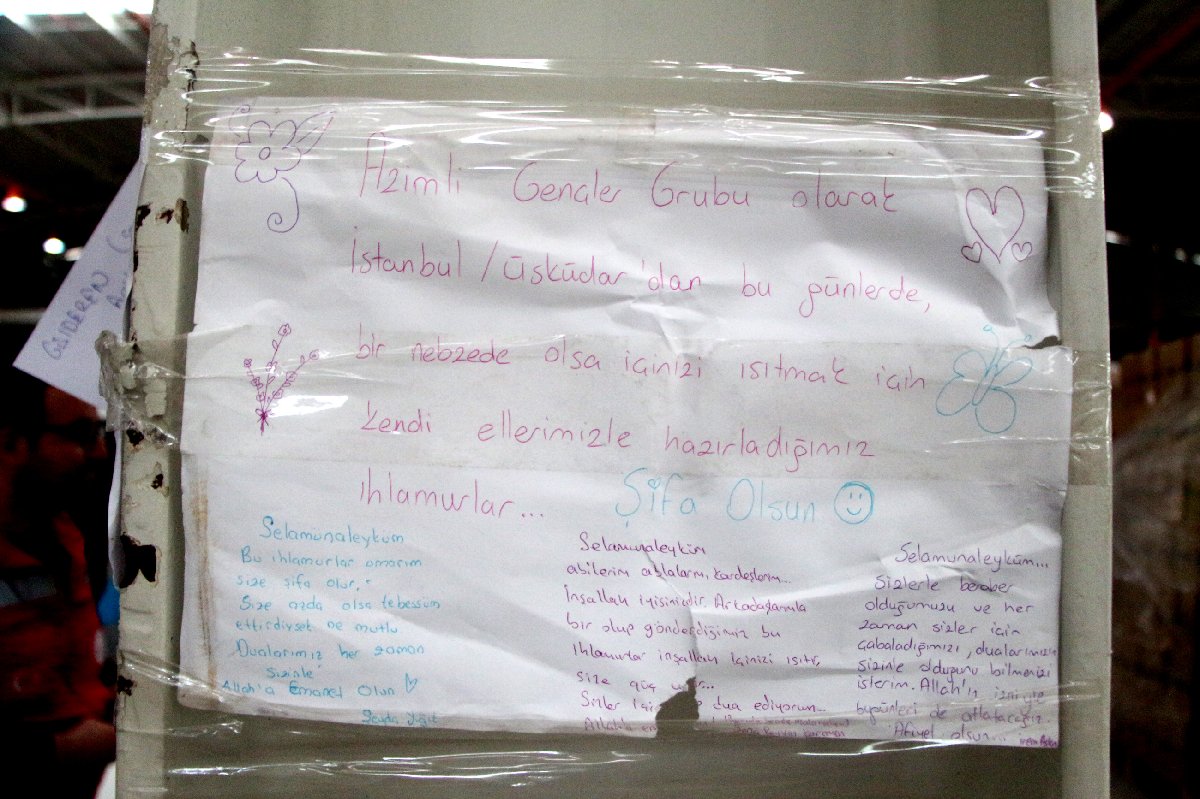 GÖNDEREN
Azimli Gençler Grubu olarak
İstanbul / Üsküdar'dan bu günlerde,
bir nebzede olsa içinizi ısıtmak için
kendi ellerimizle hazırladığımız
ıhlamurlar...
Şifa Olsun
Selamünaleyküm
Bu ıhlamurlar umarım
size şifa olur,
Size azda olsa tebessüm
ettirdiysek ne mutlu
Dualarımız her zaman
Sizinle
Allah'a Emanet Olun
Seyda Yiğit
Selamunaleyküm
abilerim ablalarım, kardeşlerim...
İnşallah iyisinizdir. Arkadaşlarımla
bir olup gönderdiğimiz bu
ıhlamurlar inşallah içinizi ısıtır,
size güç
Sizler dua ediyorum...
Allah'a
Selamunaleyküm...
Sizlerle beraber
olduğumuzu ve her
zaman sizler için
çabaladığımızı, dualarımızla
sizinle olduğunu bilmenizi
isterim. Allah'ın izniyle
bugünleri de atlatacağız.
Afiyet olsun...